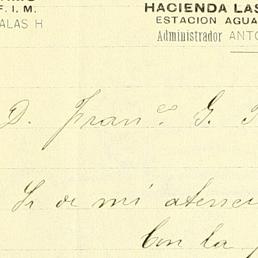 F. I. M.
ALAS H
HACIENDA LAS
ESTACION AGUA
Administrador ANTO
D. Fran.co G.
Sr de mi atenci
Con la